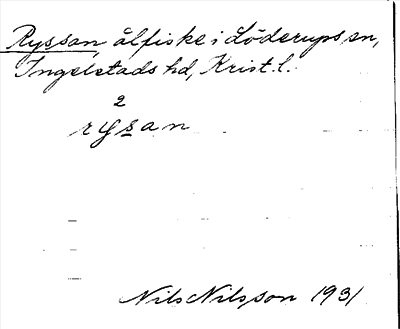 Ryssan, ålfiske i Löderups sn,
Ingelstads hd, Krist. l.
2
rysan
Nils Nilsson 1931